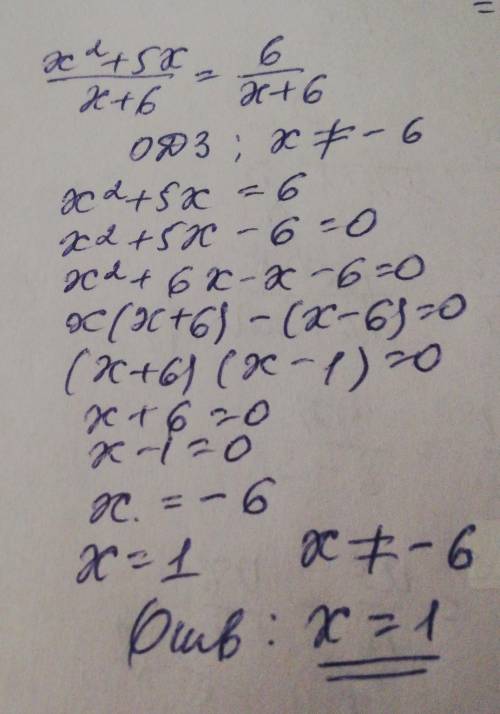 =
(x²+5x)/(x+6) = 6/(x+6)
ОДЗ; x ≠ -6
x²+5x = 6
x²+5x-6=0
x²+6x-x-6=0
x(x+6)-(x-6)=0
(x+6)(x-1)=0
x+6=0
x-1=0
x. = -6
x=1 x≠-6
Отв: x=1